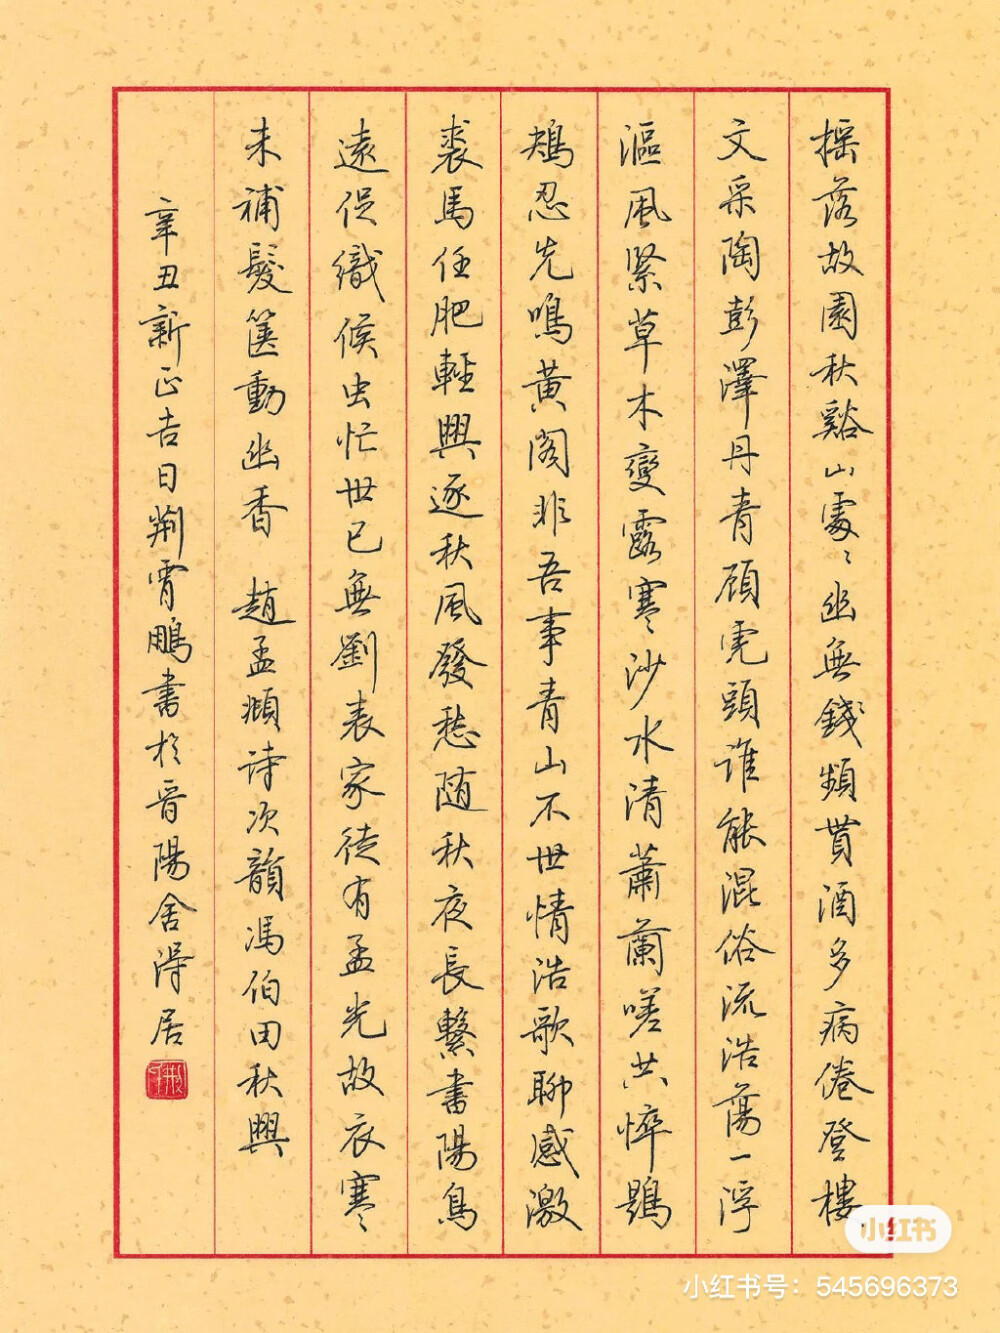 摇落故園秋谿山處〻幽無錢頻貰酒多病倦登樓
文采陶彭澤丹青顾虎頭谁能混俗流浩蕩一浮
漚風緊草木變露寒沙水清蕭蘭嗟共悴鶗
鴂忍先鳴黃阁非吾事青山不世情浩歌聊感激
裘馬任肥輕興逐秋風發愁随秋夜長繫書陽鳥
遠促織候虫忙世已無劉表家徒有孟光故衣寒
未補髮篋動幽香 趙孟頫诗次韻馮伯田秋興
辛丑新正吉日荆霄鵬書於晋陽舍得居
小红书
小红书号：545696373